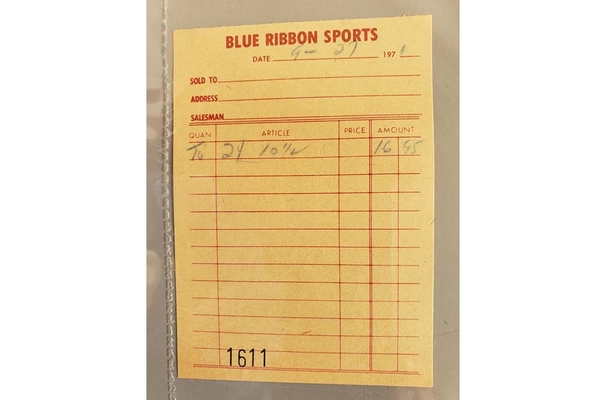 BLUE RIBBON SPORTS
DATE 9-27 1971
SOLD TO
ADDRESS
SALESMAN
QUAN ARTICLE PRICE AMOUNT
24 10½ 16 95
1611